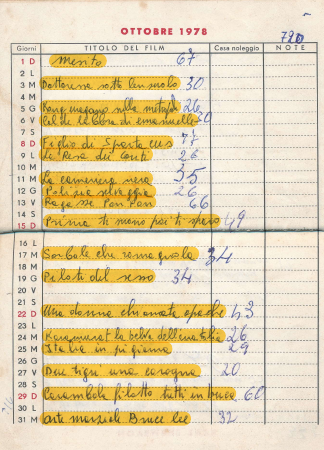 OTTOBRE 1978
Giorni TITOLO DEL FILM Casa noleggio NOTE
1 D 67
2 L
3 M Dottoressa sotto lenzuolo 30
4 M
5 G Kong uragano sulla metropoli 26
6 V di emanuelle 30
7 S
8 D Figlio di Spartacus 77
9 L La Resa dei Conti 26
10 M
11 M La cameriera nera 35
12 G Polizia selvaggia 26
13 V Ragazze Pon Pon 66
14 S
15 D Prima ti suono poi ti sparo 49
16 L
17 M che roma 34
18 M
19 G Piloti del sesso 34
20 V
21 S
22 D Una donna chiamata apache 43
23 L
24 M Karamurat la belva dell'anatolia 26
25 M Italia in pigiama 29
26 G
27 V Due tigri una carogna 20
28 S
29 D Carambola filotto tutti in buca 60
30 L
31 M Arte marziale Bruce lee 32